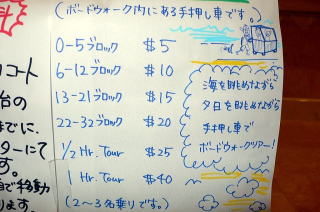 (ボードウォーク内にある手押し車です。)
0-5ブロック $5
6-12ブロック $10
13-21ブロック $15
22-32ブロック $20
1/2 Hr. Tour $25
1 Hr. Tour $40
(2～3名乗りです。)
海を眺めながら
夕日を眺めながら
手押し車で
ボードウォークツアー!
コート
台の
までに、
ターにて
す。
移動
ます。